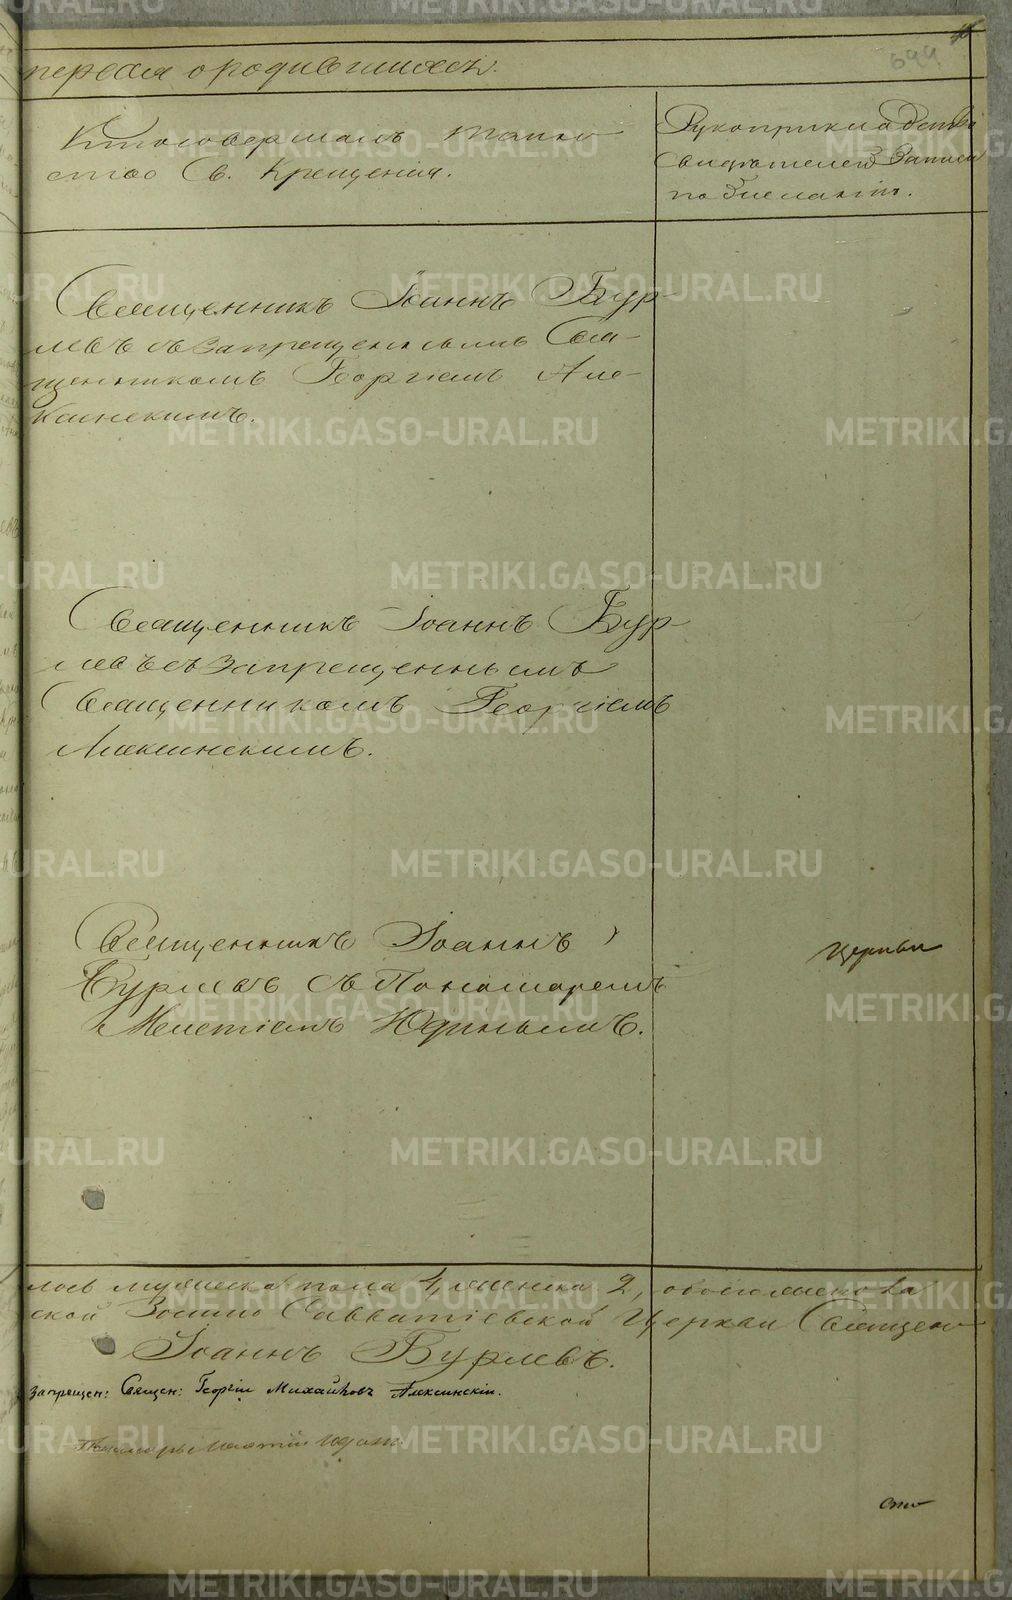 первая о родившихся.
699
Кто совершалъ таин-
ство Св. Крещенія.
Рукоприкладство
свидѣтелей записи
по желанію.
Священникъ Іоаннъ Бур-
левъ съ запрещеннымъ Свя-
щенникомъ Георгіемъ Але-
ксинскимъ.
Священникъ Іоаннъ Бур-
левъ съ запрещеннымъ
Священникомъ Георгіемъ
Алексинскимъ.
Священникъ Іоаннъ
Бурлевъ съ Пономаремъ
Мелетіемъ Юдинымъ.
Церкви
лось мужеска пола 1, женска 2, обоего
ской Зосимо Савватіевской Церкви Священ
Іоаннъ Бурлевъ.
Запрещен: Священ: Георгій Михайловъ Алексинскій.
Пономарь Мелетій Юдинъ.
METRIKI.GASO-URAL.RU